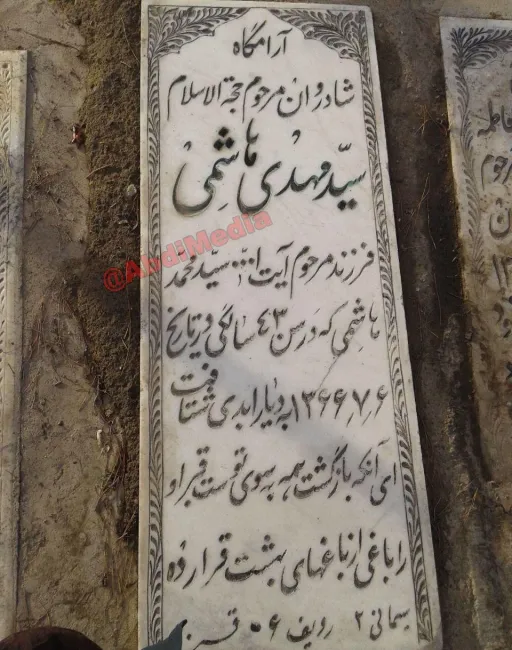 آرامگاه
شادروان مرحوم حجة الاسلام
سیّد مهدی هاشمی
فرزند مرحوم آیت الله سید محمد
هاشمی که در سن ۴۳ سالگی در تاریخ
۱۳۶۶٫۷٫۶ به دیار ابدی شتافت
ای آنکه بازگشت همه بسوی توست قبر او
را باغی از باغهای بهشت قرار ده
سیمانی ۲ ردیف ۶۰
@AbdiMedia